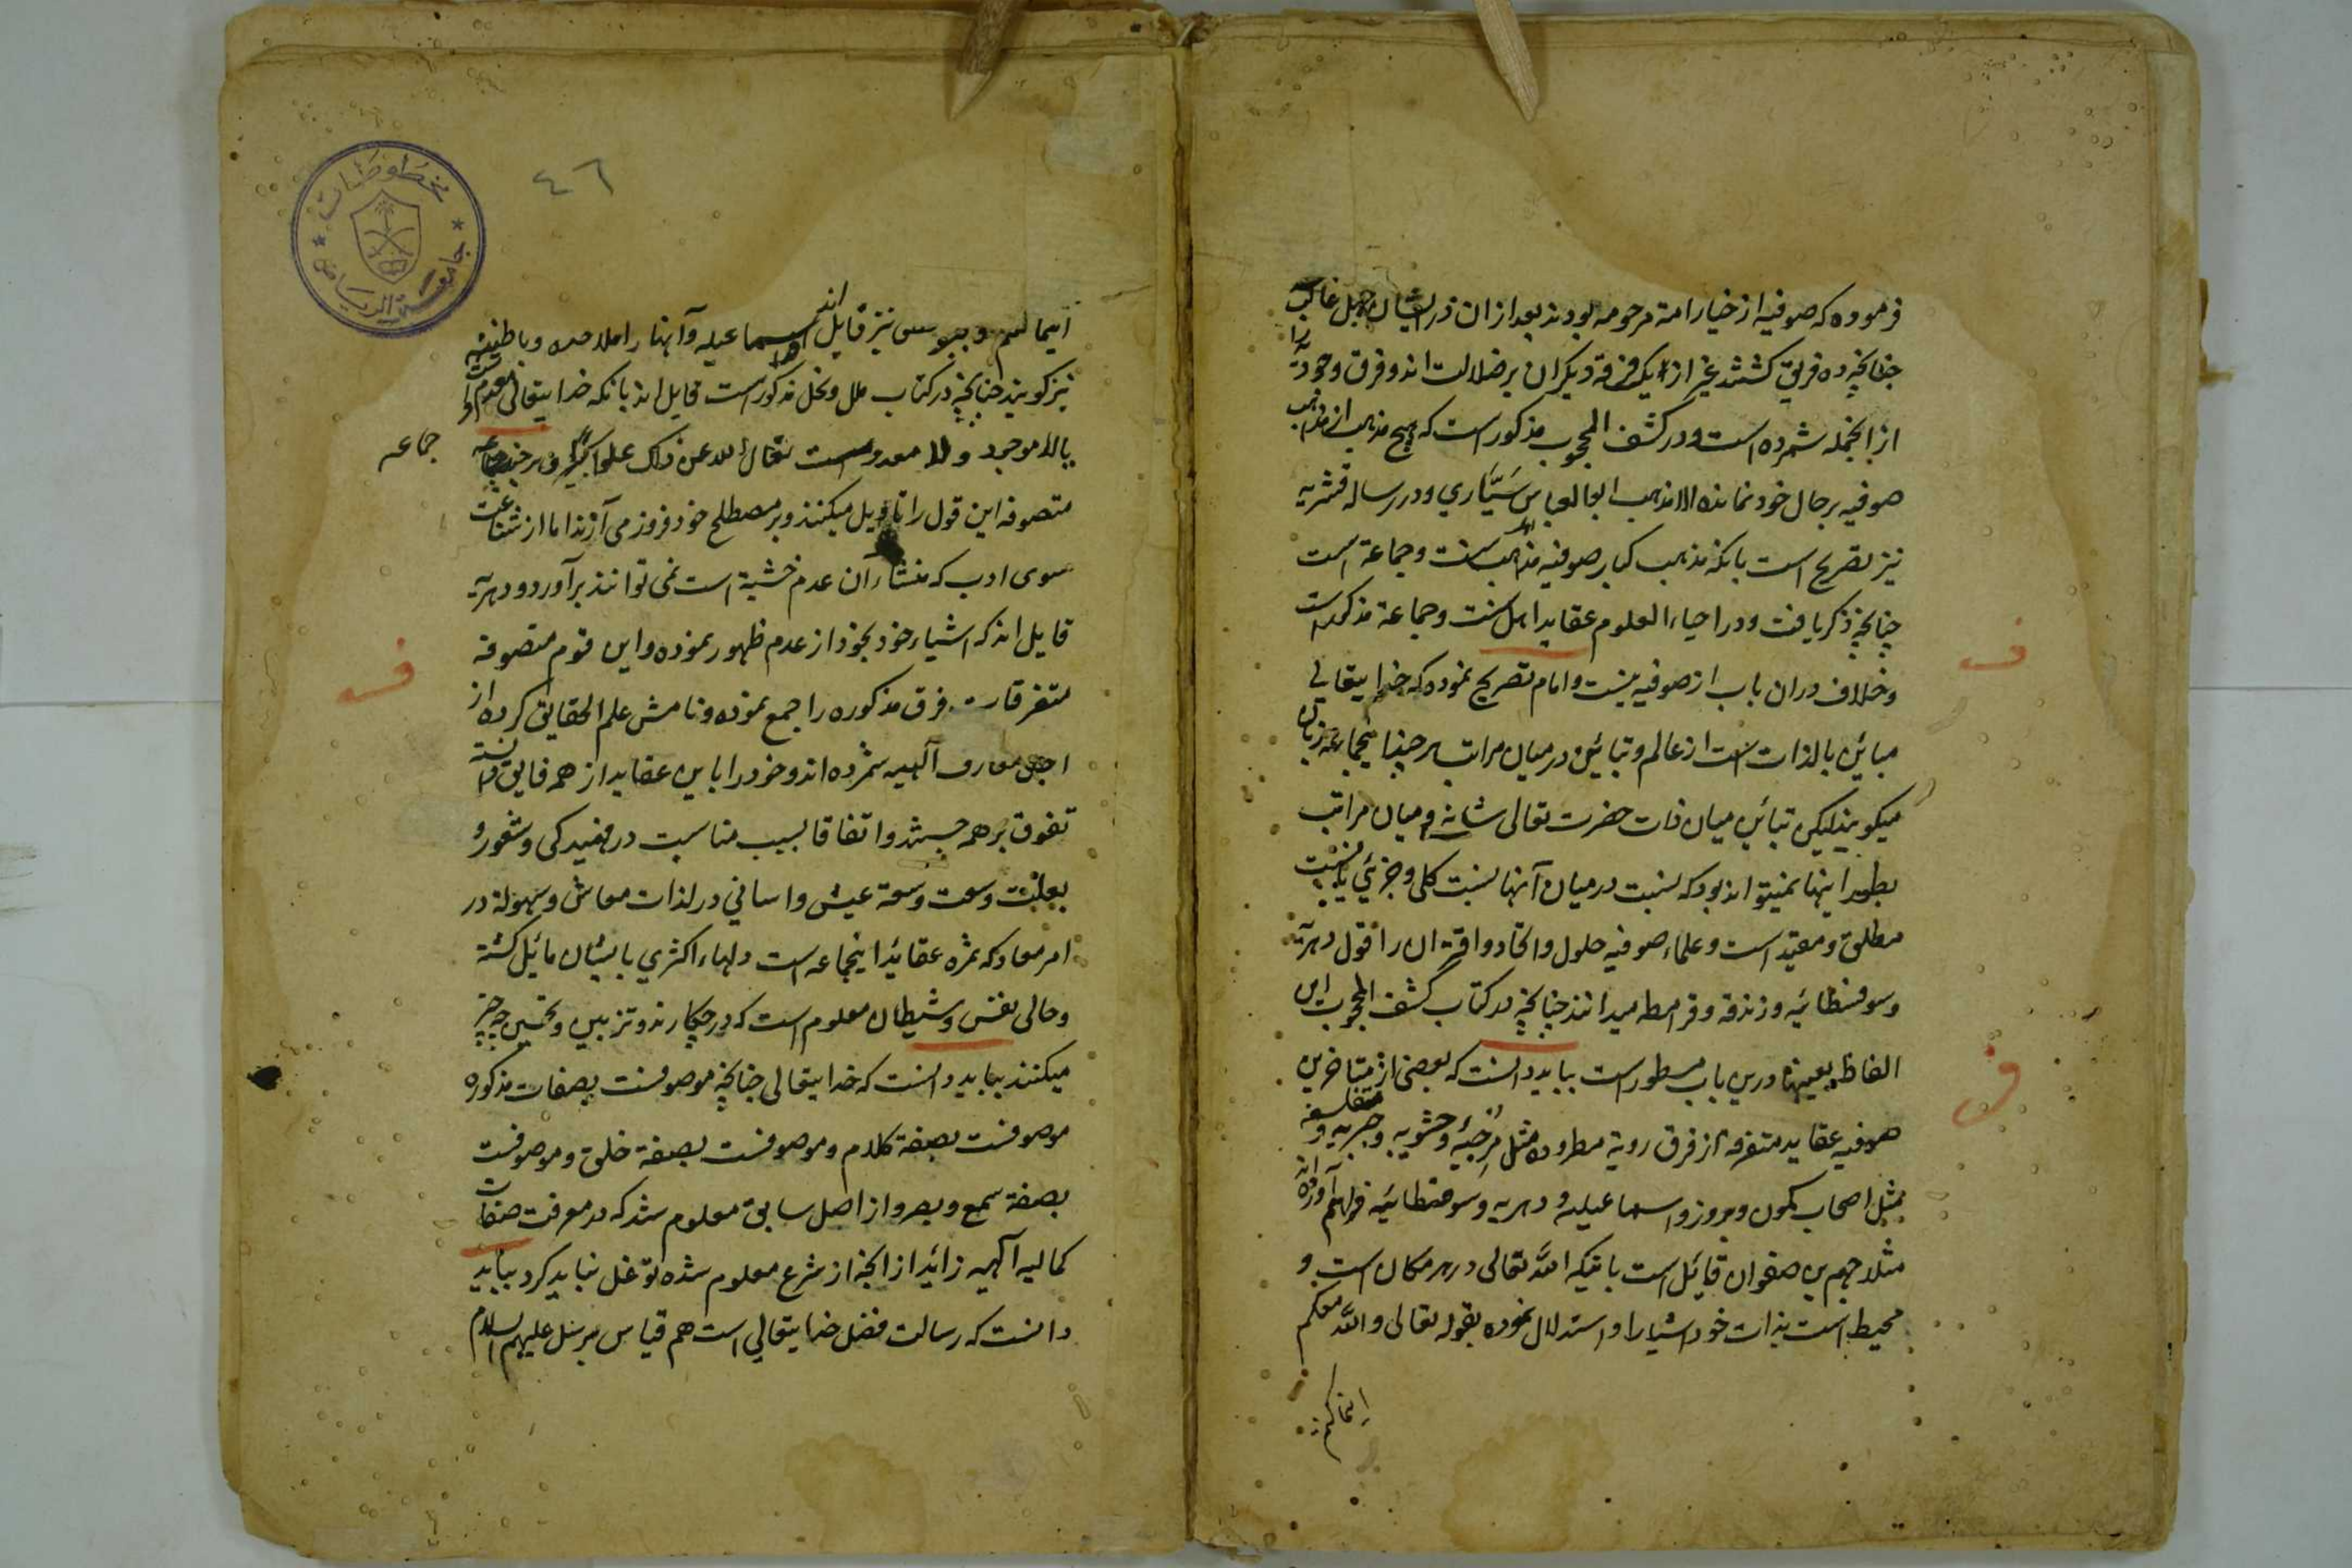 فرموده که صوفیه از خیار امة مرحومه بودند بعد از ان در ایشان جهل غالب
چنانچه ده فریق کشتند غیر از یک فرقه دیکران بر ضلالت اند و فرق وجودیه را
از انجمله شمرده است و در کشف المحجوب مذکور است که هیچ مذهب از مذاهب
صوفیه بر حال خود نمانده الا مذهب ابو العباس سَیَّاري و در رساله قشریه
نیز تصریح است بانکه مذهب کبار صوفیه مذهب اهل سنت و جماعة است
چنانچه ذکر یافت و در احیاء العلوم عقاید اهل سنت و جماعة مذکور است
و خلاف دران باب از صوفیه نیست و امام تصریح نموده که خدایتعالی
مبائن بالذات است از عالم و تبائن درمیان مراتب هر چند اینجماعه نیز بان
میکویند لیکن تبائن میان ذات حضرت تعالی شانه و میان مراتب
بطور اینها نمیتواند بود که نسبت درمیان آنها نسبت کلی و جزئي یا نسبت
مطلق و مقید است و علماء صوفیه حلول و اتحاد و اقتران را قول دهریه
و سوفسطائیه و زندقه و قرامطه میدانند چنانچه در کتاب کشف المحجوب این
الفاظ بعینها درین باب مسطور است بباید دانست که بعضی از متاخرین
صوفیه عقاید متفرقه از فرق رویة مطروده مثل مرجئه و حشویه و جبریه و متفلسفه
مثل اصحاب کمون و بروز و اسماعیلیه و دهریه و سوفسطائیه فراهم آورده اند
مثلا جهم بن صفوان قائل است باینکه الله تعالی در هر مکان است و
محیط است بذات خود اشیا را و استدلال نموده بقوله تعالی و الله معکم
اینماکنتم
٤٦
مخطوطات
جامعة الریاض
اینما کنتم و نیز قایل اند اسماعیلیه و آنها را ملاحده و باطنیه
نیز کویند چنانچه در کتاب ملل و نحل مذکور است قایل اند بانکه خدایتعالی
بالا موجود و لا معدوم است تعالی الله عن ذلک علوا کبیرا و هر چند جماعه
جماعه
متصوفه این قول را تاویل میکنند و بر مصطلح خود فرود می آرند اما از شناعت
سوی ادب که منشاء آن عدم خشیة است نمی توانند برآورد و دهریه
قایل اند که اشیاء خود بخود از عدم ظهور نموده و این قوم متصوفه
متفرقات فرق مذکوره را جمع نموده و نامش علم الحقایق کرده از
اجل معارف آلهیه شمرده اند و خود را باین عقاید از همه فایق دانسته
تفوق بر همه جستند و اتفاقا بسبب مناسبت در
بعلت وسعت وسعة عیش و اساني در لذات معاش و سهولة در
امر معاد که ثمره عقائد اینجماعه است دلهاء اکثري بایشان مائل کشته
و حالی نفس و شیطان معلوم است که در چکارند و تزیین و تحسین چه چیز
میکنند بباید دانست که خدایتعالی چنانچه موصوفست بصفات مذکوره
موصوفست بصفة کلام و موصوفست بصفة خلق و موصوفست
بصفة سمع و بصر و از اصل سابق معلوم شد که در معرفت صفات
کمالیه آلهیه زائد از انچه از شرع معلوم شده توغل نباید کرد بباید
دانست که رسالت فضل خدایتعالي است هم قیاس برسل علیهم السلام